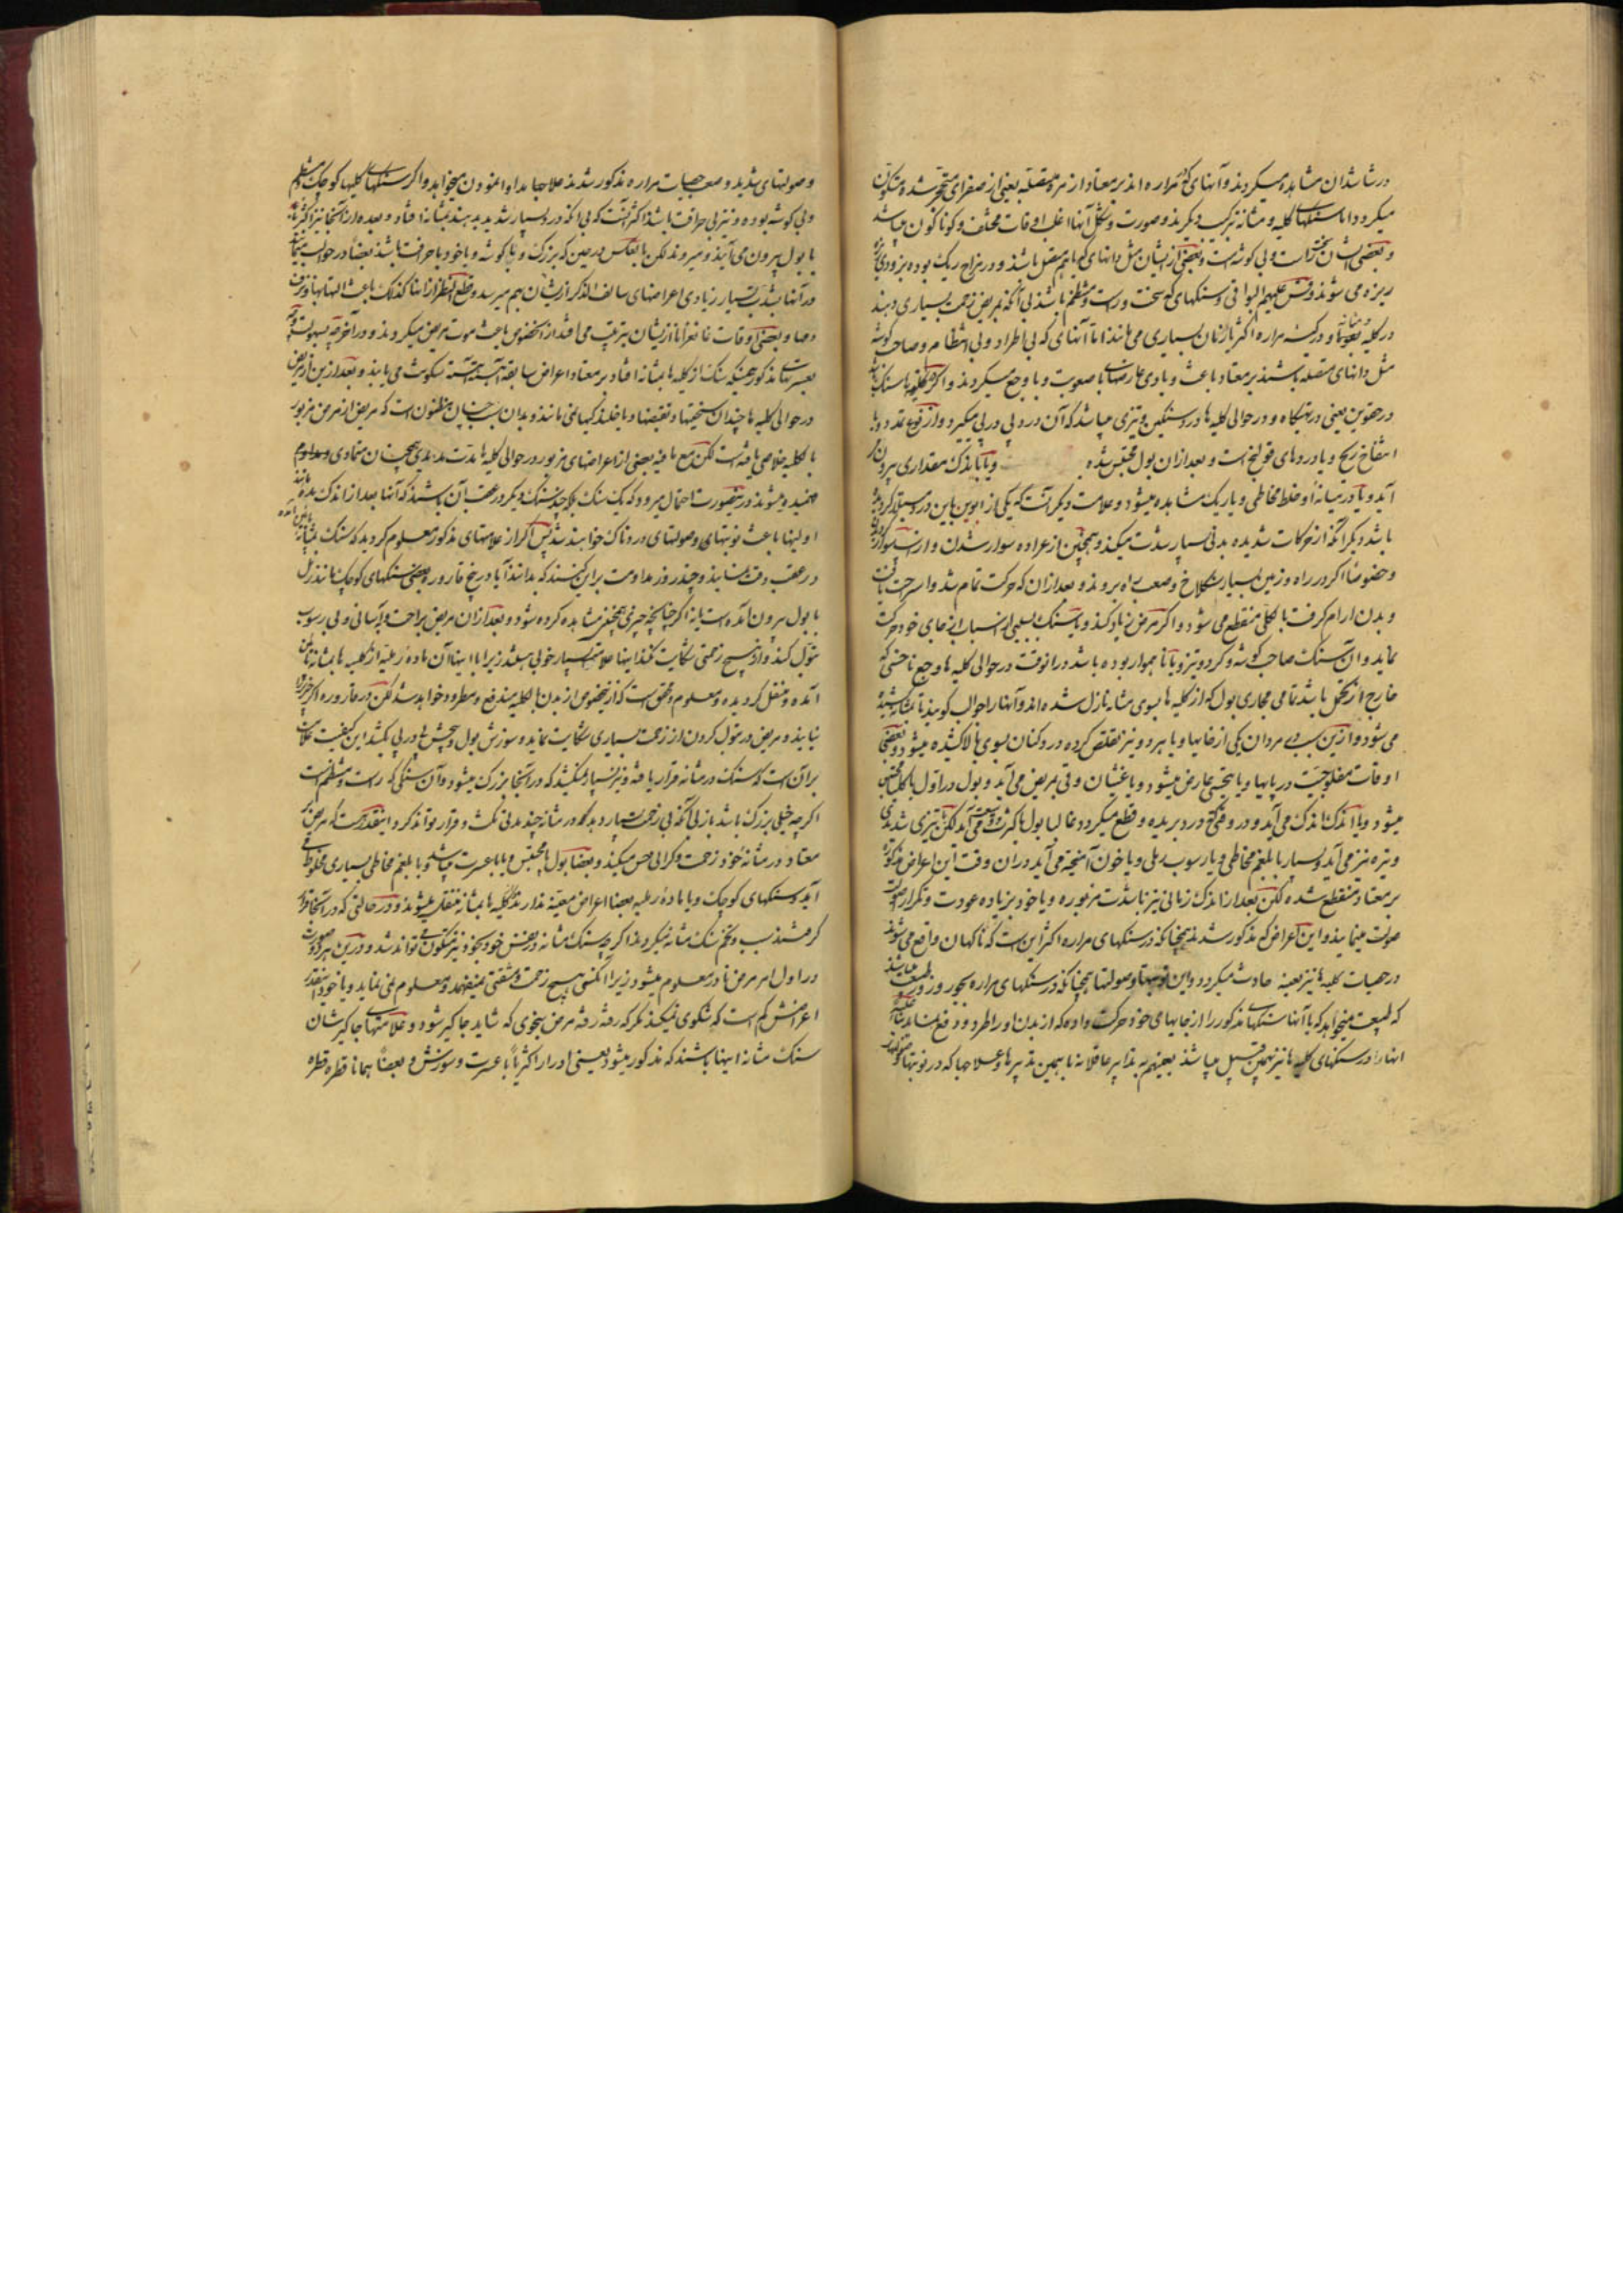 در شاشدان مشاهده میکردند و آنهای که مراره اند بر معتاد از مره منفصله یعنی از صفرای متحجر شده متکون
میکردد اما سنکهای کلیه و مثانه ترکیب دیکرند و صورت و شکل آنها اغلب اوقات مختلف و کوناکون میباشد
و بعضی ایشان سخت راست و بی کوشه است و بعضی از ایشان مثل دانهای که با هم متصل باشند و در مزاج ریک بوده بزودی
ریزه می شوند و قس علیهم البواقی و سنکهای که سخت و راست و منظم باشند بی آنکه بمریض زحمت بسیاری دهند
در کلیه و در کیسه مراره اکثر یا زمان بسیاری می مانند اما آنهای که بی اطراد و بی انتظام و صاحب کوشه
مثل دانهای متصله باشند بر معتاد باعث و بادی عارضهای با صعوبت و با وجع میکردند و اکر در کلیه یا سنک باشد
در حقوین یعنی در تهیکاه و در حوالی کلیه ها درد سنکین و تیزی میباشد که آن درد پی در پی میکیرد و از نوع تمدد و با
انتفاخ ریح و با دردهای قولنج است و بعد از ان بول محتبس شده و یا با اندک مقداری بیرون
آید و یا در میانه او خلط مخاطی و باریک مشاهده میشود و علامت دیکر آنست که یکی از ابوین باین درد مبتلا کردیده
باشد دیکر آنکه از حرکات شدیده بدنی بسیار شدت میکند و همچنین از عراده سوار شدن و از اسب سواری
و خصوصا اکر در راه و زمین بسیار سنکلاخ و صعب براه بروند و بعد از ان که حرکت تمام شد و استراحت یافت
و بدن ارام کرفت با کلی منقطع می شود و اکر مرض زیاد کند و یا سنک بسببی از اسباب از جای خود حرکت
نماید و ان سنک صاحب کوشه و کرد و تیز و یا نا هموار بوده باشد در انوقت در حوالی کلیه ها وجع ناخسی که
خارج از تحمل باشد تمامی مجاری بول که از کلیه ها بسوی مثانه نازل شده اند و آنها را حوالب کویند تا بمثانه کشیده
می شود و از این سبب در مردان یکی از خایها و یا هر دو نیز تقلص کرده درد کنان بسوی بالا کشیده میشود و بعضی
اوقات مفلوجیت در پایها و یا تخسی عارض میشود و یا غشیان و قی بمریض می آید و بول در اول بالکل محتبس
میشود و یا اندک اندک می آید و در وقتی که درد بریده و قطع میکردد غالبا بول با کثرت و وسعت می آید لکن با تیزی شدیدی
و تیره نیز می آید و بسیار با بلغم مخاطی و با رسوب رملی و یا خون آمیخته می آید در ان وقت این اعراض مذکوره
بر معتاد منقطع شده لکن بعد از اندک زمانی نیز با شدت مزبوره و یا خود بزیاده عودت و تکرار
صولت مینمایند و این اعراض که مذکور شدند همچنانکه در سنکهای مراره اکثر این است که ناکهان واقع می شوند
در حصیات کلیه ها نیز بعینه حادث میکردد و این نوبتها و صولتها همچنانکه در سنکهای مراره بجور و زور طبیعت میباشند
که طبیعت میخواهد که با آنها سنکهای مذکور را از جایهای خود حرکت داده که از بدن او را طرد و دفع نماید
انها را در سنکهای کلیه ها نیز بهمین قبیل میباشند بعینهم به تدابیر عاقلانه با بهمین تدبیرها و علاجها که در نوبتها
و صولتهای شدید و صعب حصیات مراره مذکور شدند علاجا مداوا نمودن میخواهد و اکر سنکهای کلیها کوچک و منظم
و بی کوشه بوده و نیز بی حرافت باشند اکثر آنست که بی آنکه درد بسیار شدید بدهند بمثانه افتاده و بعده از آنجا نیز اکثریا
با بول بیرون می آیند و میروند لکن بالعکس در حین که بزرک و یا کوشه و یا خود با حرافت باشند بعضا در حوالب
در آنها بند شده بسیار زیادی اعراضهای سالف الذکر از ایشان بهم میرسد و قطع النظر از اینها کذلک باعث التهابها و
و بعضی اوقات غانغرانا از ایشان بترتیب می افتد از انخصوص باعث موت مریض میکردند و در آخر چه بسهولت
بعسرتهای مذکور همینکه سنک از کلیه ها بمثانه افتاد بر معتاد اعراض سابقه آهسته آهسته سکونت می یابند و بعد از این مریض
در حوالی کلیه ها چندان سختیها و تقبضها و یا خلندکیها نمی ماند و بدان سبب چنان مظنون است که مریض از مرض مزبور
بالکلیه خلاصی یافته است لکن مع ما فیه بعضی از اعراضهای مزبور در حوالی کلیه ها مدت مدیدی همچنان متمادی و مداوم
فهمیده میشوند در اینصورت احتمال میرود که یک سنک بلکه چند سنک دیکر در عقب آن باشند که آنها بعد از اندک مده مانند
اولینها باعث نوبتهای و صولتهای دردناک خواهند شد پس اکر از علامتهای مذکور معلوم کردید که سنک بمثانه
در عقب دقت نمایند و چند روز مداومت بر این کنند که بدانند آیا در بیخ قاروره بعضی سنکهای کوچک مانند رمل
با بول بیرون آمده است یا نه اکر چنانچه چیزی همچنین مشاهده کرده شود و بعد از ان مریض براحت و باسانی و بی رسوب
تبول کند و از هیچ زحمتی شکایت نکند اینها علامت بسیار خوبی میباشد زیرا با اینها آن ماده رملیه از کلیه ها بمثانه پائین
آمده و منتقل کردیده و معلوم و محقق است که از اینخصوص از بدن بالکلیه مندفع و مطرود خواهد شد لکن در قاروره اکر چیزی
نیابند و مریض در تبول کردن از زحمت بسیاری شکایت نماید و سوزش بول و پیچش پی در پی بکشد این کیفیت علامت
بر آن است که سنک در مثانه قرار یافته و نیز بسیار نمیکشد که در آنجا بزرک میشود و آن سنکی که راست و منتظم است
اکر چه خیلی بزرک باشد باز بی آنکه بی زحمت بسیار بدهد در مثانه چند مدتی مکث و قرار تواند کرد و اینقدر هست که مریض بر
معتاد در مثانه خود زحمت و کرانی حس میکند و بعضا بول یا محتبس و یا با عسرت میباشد و یا با بلغم مخاطی بسیاری مخلوط می
آید و سنکهای کوچک و یا ماده رملیه بعضا اعراض معینه ندارند از کلیه ها بمثانه منتقل میشوند و در حالتی که در آنجا قرار
کرفتند سبب و تخم سنک مثانه میکردند اکر چه سنک مثانه در نفس خود بخود نیز متکون می تواند شد و در این هر دو صورت
در اول امر مرض نادر معلوم میشود زیرا آنکس هیچ زحمت و مشقتی نمیفهمد و معلوم نمی نماید و یا خود آنقدر
اعراضش کم است که شکوی نمیکند مکر که رفته رفته مرض بنحوی که شاید جا کیر شود و علامتهای جا کیر شان
سنک مثانه اینها باشند که مذکور میشود یعنی ادرار اکثریا با عسرت و سوزش و بعضا همانا قطره قطره